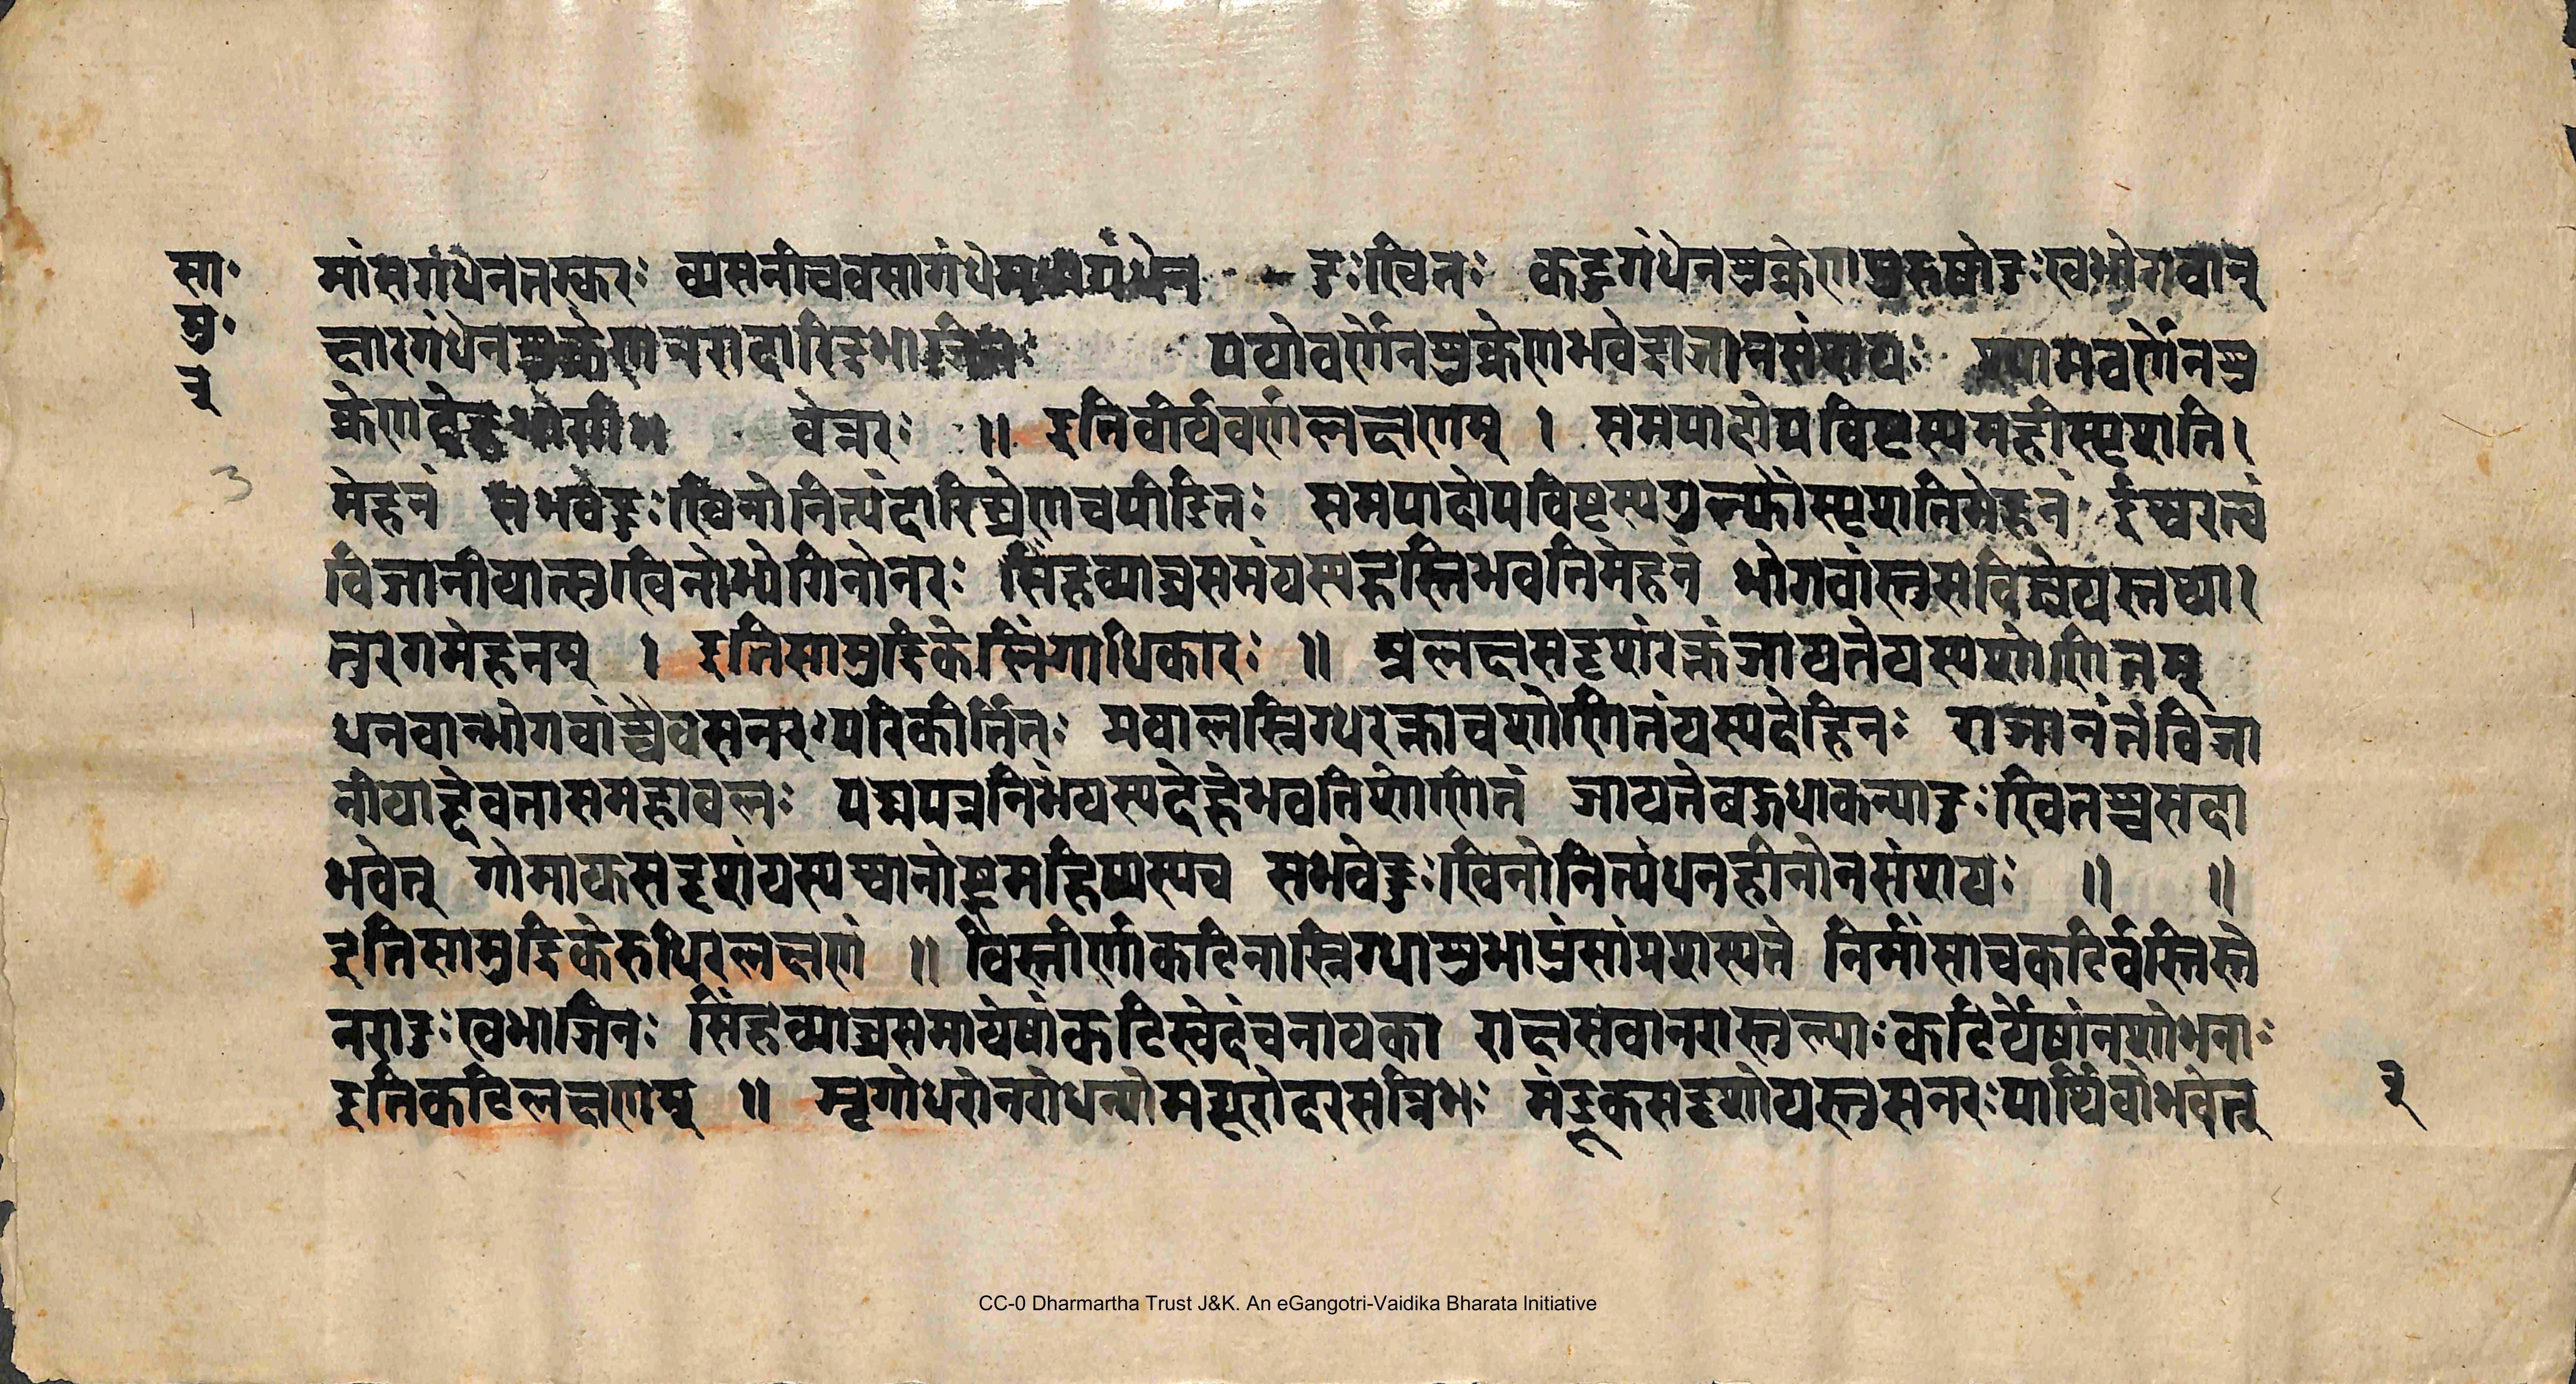 सा॰
मु॰
३
3
मांसगंधेनतस्करः व्यसनीचवसागंधे दुःखितः कटुगंधेनशुक्रेणपुरुषोदुःखभोगवान्
क्षारगंधेनशुक्रेणनरादारिद्रभागिनः पयोवर्णेनशुक्रेणभवेद्राजानसंशयः श्यामवर्णेनशु
क्रेण वेन्नरः ॥ इतिवीर्यवर्णलक्षणम् । समपादोपविष्टस्यमहीस्पृशति।
मेहनं सभवेद्दुःखितोनित्यंदारिद्र्येणचपीडितः समपादोपविष्टस्यगुल्फौस्पृशतिमेहनं ईश्वरत्वं
विजानीयात्सुखिनोभोगिनोनरः सिंहव्याघ्रसमंयस्यह्रस्तिभवतिमेहनं भोगवांस्तुसविज्ञेयस्तथा।
तुरगमेहनम् । इतिसामुद्रिकेलिंगाधिकारः ॥ मूलक्षसदृशंरक्तंजायतेयस्यशोणितम्
धनवान्भोगवांश्चैवसनरःपरिकीर्तितः प्रवालस्निग्धरक्ताचशोणितंयस्यदेहिनः राजानंतंविजा
नीयाद्देवतासमहाबलः पद्मपत्रनिभंयस्यदेहेभवतिशोणितं जायतेबहुधाकन्यादुःखितश्चसदा
भवेत् गोमायुसदृशंयस्यश्वानोष्ट्रमहिष्यस्यच सभवेद्दुःखितोनित्यंधनहीनोनसंशयः ॥ ॥
इतिसामुद्रिकेरुधिरलक्षणं ॥ विस्तीर्णाकटिनास्निग्धाशुभापुंसांप्रशस्यते निर्मांसाचकटिर्वस्तिस्ते
नरादुःखभाजिनः सिंहव्याघ्रसमायेषांकटिस्वेदंचनायका राक्षसवानरास्तुल्याःकटिर्येषांनशोभनाः
इतिकटिलक्षणम् ॥ मृगोधरोनरोधन्योमयूरोदरसन्निभः मंडूकसदृशोयस्तुसनरःपार्थिवोभवेत्
३
CC-0 Dharmartha Trust J&K. An eGangotri-Vaidika Bharata Initiative